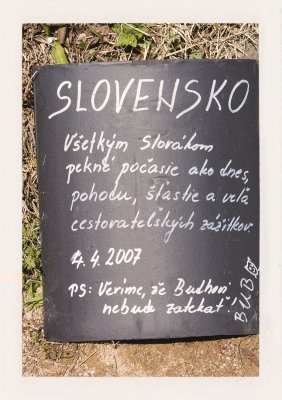 SLOVENSKO
Všetkým Slovákom
pekné počasie ako dnes,
pohodu, šťastie a veľa
cestovateľských zážitkov.
4.4.2007
PS: Veríme, že Budhovi
nebude zatekať!
BUB